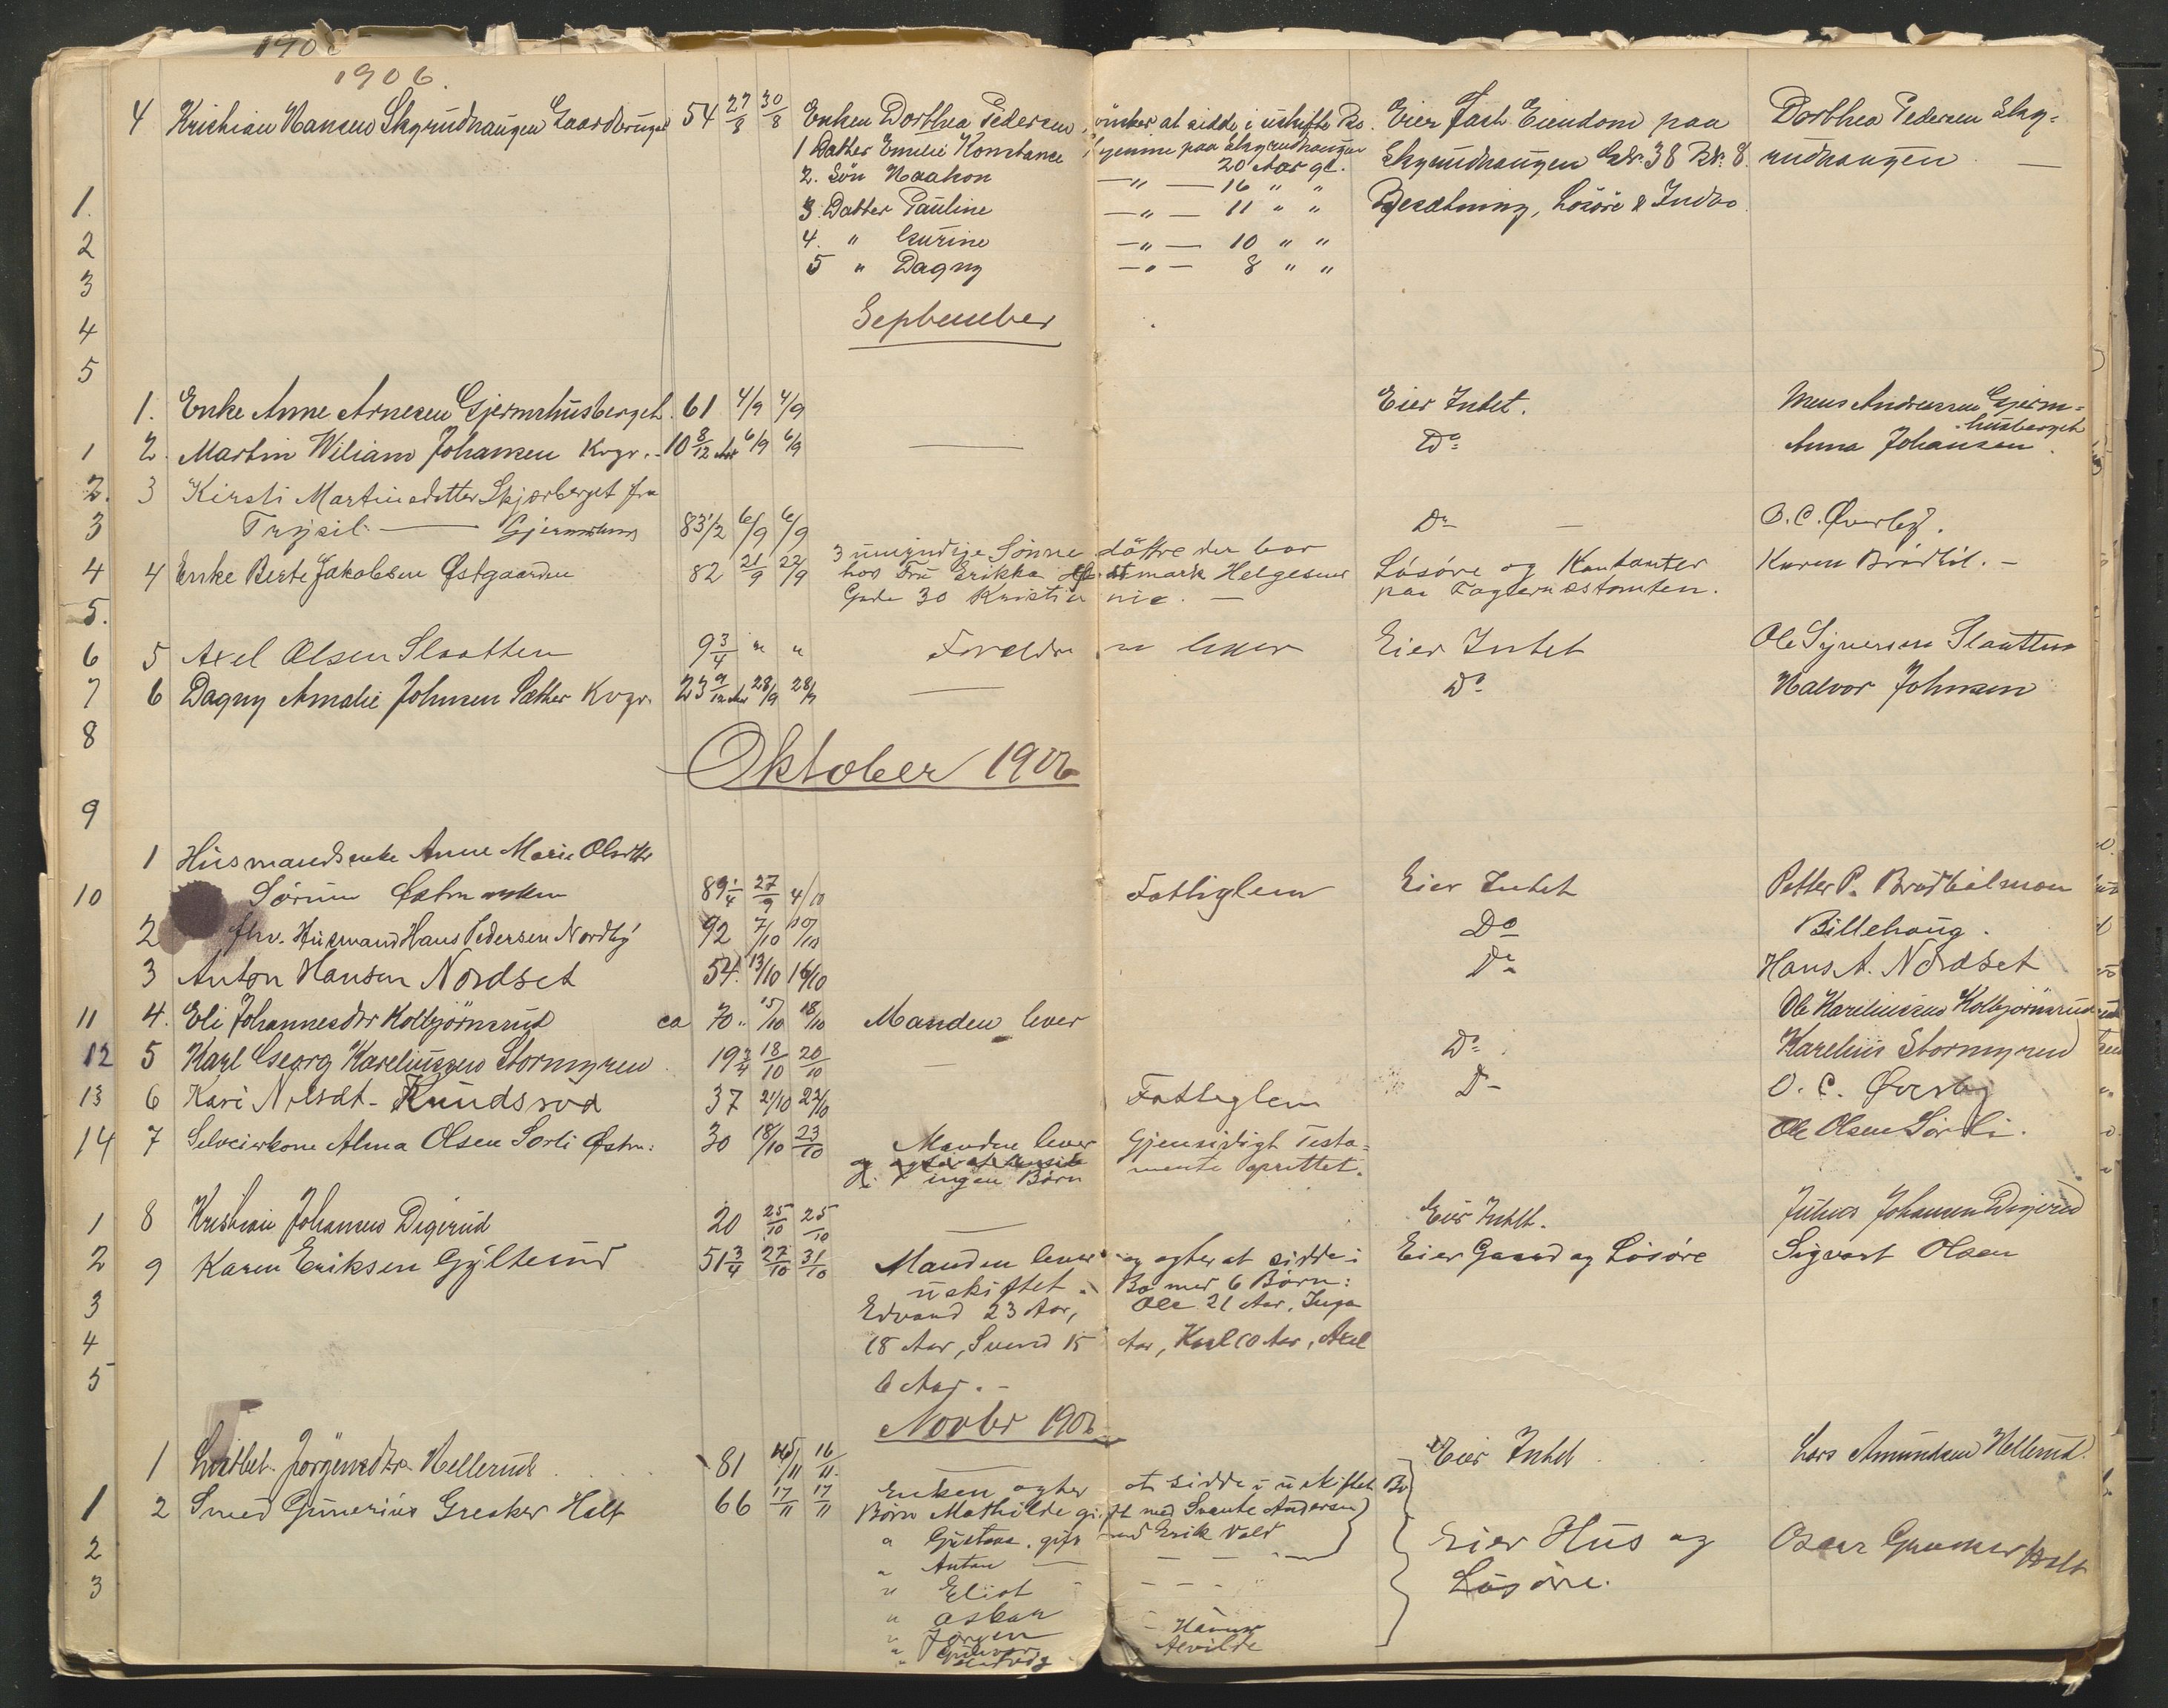 1906.
4 Kristian Hansen Skyrudhaugen Gaardbruger 54 27/8 30/8 Enken Dorthea Pedersen, önsker at sidde i uskifte Bo. Eier Fast Eiendom paa Dorthea Pedersen Sky-
1 Datter Emelie Konstance hjemme paa Skyrudhaugen 20 Aar gl. Skyrudhaugen Gdr. 38 Br. 8. rudhaugen —
2. Sön Haakon —"— 16 " "
1. 3. Datter Pauline —"— 11 " " Besætning, Lösöre & Indbo
2 4. " Laurine —"— 10 " "
3 5 " Dagny —"— 8 " "
4 September
5
1. Enke Anne Arnesen Gjermshusberget. 61 4/9 4/9 Eier Intet. Mens Andreassen Gjerm-
husberget
1 2. Martin Wiliam Johansen Kvgr. 10 8/12 Aar 6/9 6/9 — Do Anna Johansen.
2. 3 Kirsti Martinsdatter Skjærberget fra
3 Trysil — Gjermshus 83 1/2 6/9 6/9 Do — O. C. Øverby.
4 4 Enke Berte Jakobsen Østgaarden 82 21/9 22/9 3 umyndige Sönne döttre der bor
hos Fru Erikka mark Helgesens Lösöre og Kontanter Karen Brödböl. -
5. Gade 30 Kristiania. — paa Tomten.
6 5 Axel Olsen Slaatten 9 3/4 " " Forældrene lever Eier Intet Ole Syversen Slaatten
7 6 Dagny Amalie Johnsen Sæther Kvgr. 23 9/12 Aar 28/9 28/9 — Do Halvor Johnsen
8 Oktober 1906
9
1 Husmandsenke Anne Marie Olsdtr
10 Sörum Østmarken 89 1/4 27/9 4/10 Fattiglem Eier Intet Petter P. Brødbölmoen
2 fhv. Husmand Hans Pedersen Nordby 92 7/10 10/10 Do Billehaug.
3 Anton Hansen Nordset 54. 13/10 16/10 Do Hans A. Nordset
11 4. Eli Johannesdtr Kolbjörnsrud ca 70 " 15/10 18/10 Manden lever Ole Kareliussen Kolbjörnsrud
12 5 Karl Georg Kareliussen Stormyren 19 3/4 18/10 20/10 — Do Karelius Stormyren
13 6 Kari Nilsdt- Knudsrød 37 21/10 22/10 Fattiglem Do O. C. Øverby
14 7 Selveierkone Alma Olsen Sorli Østm: 30 18/10 23/10 Manden lever Gjensidigt Testa-
ingen Børn mente oprettet. Ole Olsen Sørli.
1 8 Kristian Johansen Digerud 20 25/10 25/10 — Eier Intet. Julius Johansen Digerud
2 9 Karen Eriksen Gyltelund 51 3/4 27/10 31/10 Manden lever og agter at sidde i Eier Gaard og Lösöre Sigvart Olsen
uskiftet Bo med 6 Børn:
3 Edvard 23 Aar, Ole 21 Aar, Inga
4 18 Aar, Svend 15 Aar, Karl 10 Aar, Axel
5 6 Aar. -
Novbr 1906
1 Lisbet Jörgensdtr. Hellerud 81 15/11 16/11 — Eier Intet Lars Amundsen Hellerud.
1 2 Smed Gunerius Greaker Holt 66 17/11 17/11 Enken agter at sidde i uskiftet Bo
Børn Mathilde gift med Svante Andersen
2 " Gustava. gift med Erik Vold Eier Hus og Oscar Greaker Holt
3 " Anton — — — Lösöre.
" Eliot — — —
" Oskar
" Jörgen — Hanna
" Gunvor Alvilde
" Hedvig